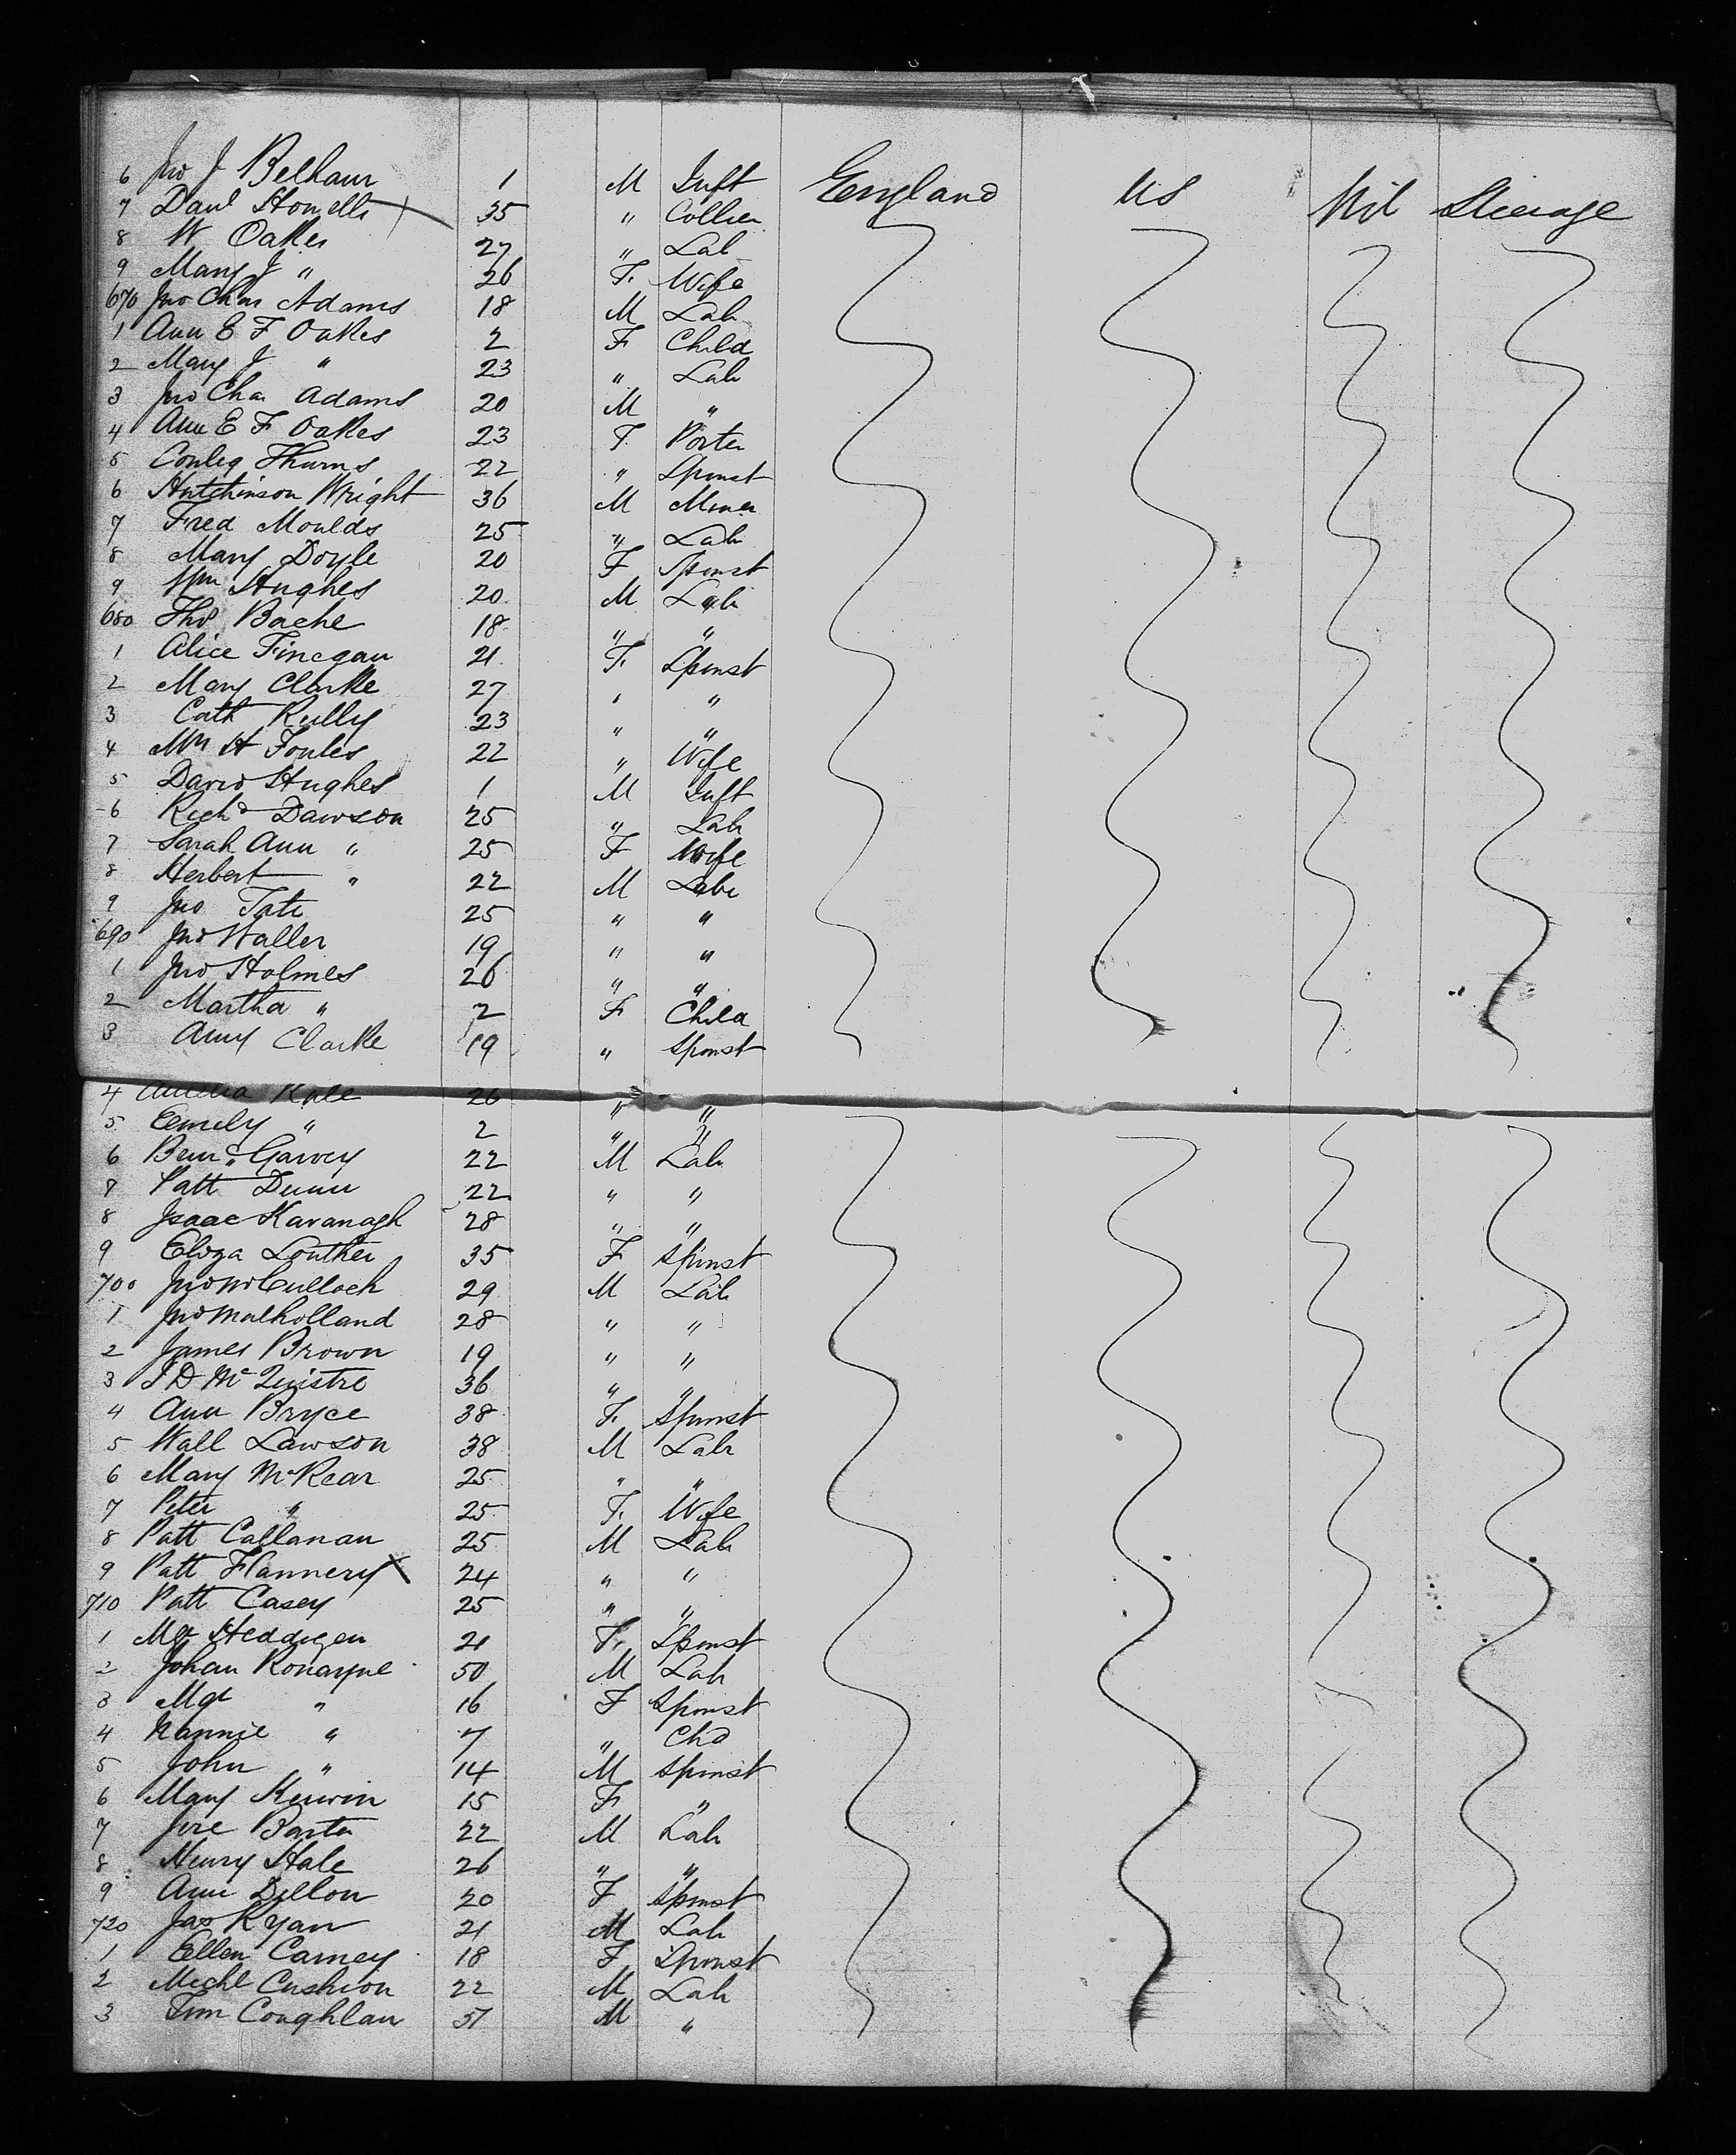 6 Jno J Belhaur 1 M Inft England US Nil Steerage
7 Danl Howells 35 " Collier
8 W Oakes 27 " Lab
9 Mary J " 26 F. Wife
670 Jno Chas Adams 18 M Lab
1 Ann E F Oakes 2 F Child
2 Mary J " 23 " Lab
3 Jno Cha Adams 20 M "
4 Ann E F Oakes 23 F. Porter
5 Conleq Thurns 22 " Spinst
6 Hutchinson Wright 36 M Miner
7 Fred Moulds 25 " Lab
8 Mary Doyle 20 F Spinst
9 Wm Hughes 20 M Lab
680 Thos Bache 18 " "
1 Alice Finegan 21 F. Spinst
2 Mary Clarke 27 " "
3 Cath Reilly 23 " "
4 Mrs H Foules 22 " Wife
5 David Hughes 1 M Inft
6 Richd Dawson 25 " Lab
7 Sarah Ann " 25 F Wife
8 Herbert " 22 M Labr
9 Jno Tate 25 " "
690 Jno Waller 19 " "
1 Jno Holmes 26 " "
2 Martha " 2 F Child
3 Amy Clarke 19 " Spinst
4 Amelia Kale 26 " "
5 Eemily " 2 " "
6 Bernd Garvey 22 M Lab
7 Patt Dunn 22 " "
8 Isaac Kavanagh 28 " "
9 Eliza Louther 35 F Spinst
700 Jno McCulloch 29 M Lab
1 Jno Mulholland 28 " "
2 James Brown 19 " "
3 J D McQuistre 36 " "
4 Ann Bryce 38 F. Spinst
5 Wall Lawson 38 M Labr
6 Mary McKear 25 " "
7 Peter " 25 F. Wife
8 Patt Callanan 25 M Lab
9 Patt Flannery X 24 " "
710 Patt Casey 25 " "
1 Mgt Heddigen 21 F. Spinst
2 Johan Ronayne 50 M Lab
3 Mgt " 16 F Spinst
4 Nannie " 7 " Chd
5 John " 14 M Spinst
6 Mary Kerwin 15 F "
7 Jire Barter 22 M Lab
8 Henry Hale 26 " "
9 Ann Dillon 20 F Spinst
720 Jas Ryan 21 M Lab
1 Ellen Carney 18 F Spinst
2 Michl Cushion 22 M Lab
3 Tim Coughlan 51 M "